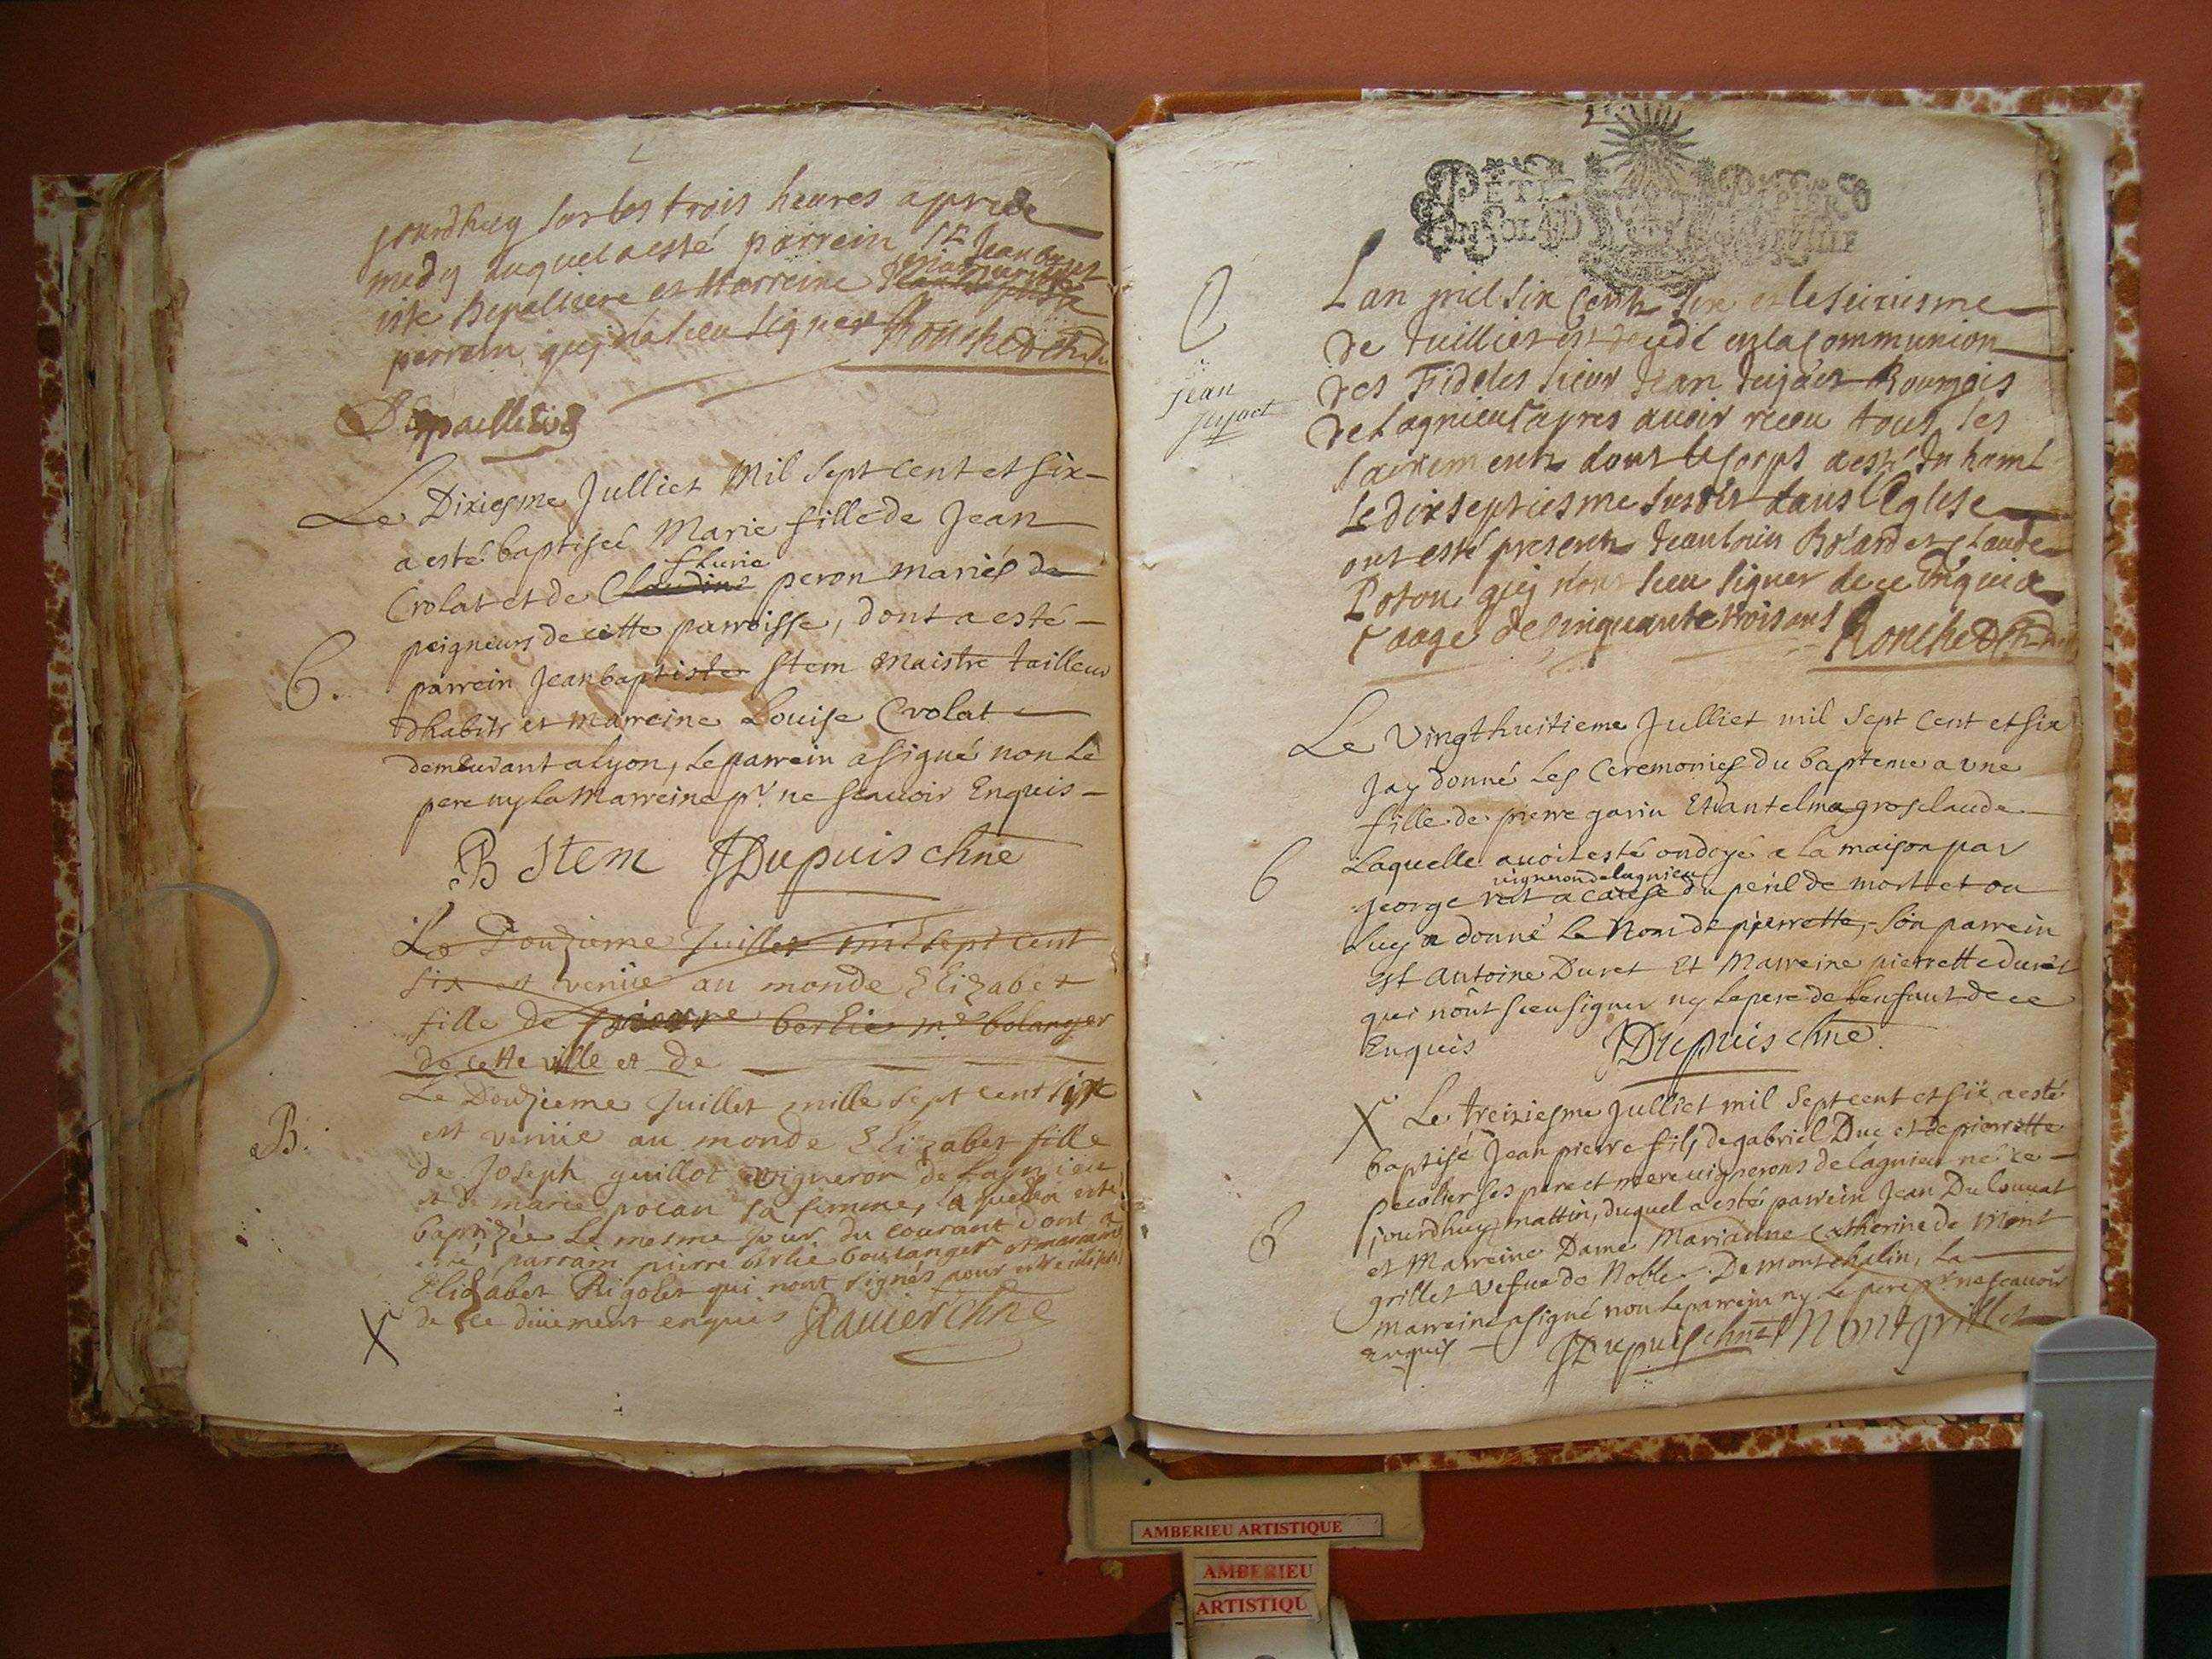 jourdhuy sur les trois heures apres
medy duquel a esté parrein Sr Jean bapt
iste Depalliere et Marreine
perrein qui n'a sceu signer Ronched chne
Depaillieres
Le Dixiesme Julliet Mil sept cent et six
a esté baptiseé Marie fille de Jean
flurie
Crolat et de Claudine peron mariés de
peigneurs de cette parroisse, dont a esté
B.
parrein Jean baptiste Stem Maistre tailleur
dhabits et marreine Louise Crolat
demeurant a lyon, Le parrein a signé non Le
pere ny La Marreine pr. ne scavoir Enquis
B Stem JDupuis chne
Le Douzieme Juillet mil sept cent
six est venüe au monde Elizabet
fille de pierre berlie me. bolanger
de cette ville et de
Le Douzieme Juillet mille sept cent six
B.
est venüe au monde Elizabet fille
de Joseph guillot vigneron de Lagnieu
et de marie pocan sa femme, laquelle a esté
baptizée le mesme jour du courant dont a
esté parrain pierre berlie boulanger et marraine
Elizabet Rigolet qui nont signés pour estre
de ce düement enquis Jtavier Chne
X
PETIT PAPIER
EN SOL
Lan mil six Cents six et le seiziesme
de Julliet est decedé en la Communion
des Fideles sieur Jean Jujat Bourgois
Jean
Jujat
de Lagnieu apres avoir receu tous les
Sacrements dont le corps a esté Inhumé
Le dix septiesme susdit dans l'Eglise
ont esté presents Jean louis Bolard et Claude
Poton qui n'ont sceu signer de ce Enquis
aagé de cinquante trois ans Ronched chne
Le Vingt huitieme Julliet mil sept cent et six
Jay donné Les Ceremonies du bapteme a une
fille de pierre garin Et dantelma grosclaude
B
Laquelle avoit esté ondoyé a la maison par
vigneron de lagnieu
george rat a cause du peril de mort et on
Luy a donné Le Nom de pierrette, Son parrein
Est Antoine Duret Et Marreine pierrette duret
qui nont sceu signer ny Le pere de l'enfant de ce
Enquis JDupuis chne
X Le treiziesme Julliet mil Sept cent et six a esté
baptisé Jean pierre fils de gabriel Duc et de pierrette
pecolier ses pere et mere vignerons de lagnieu né ce
B
jourdhuy mattin, duquel a esté parrein Jean Du louvat
et Marreine Dame Marianne Catherine de Mont
grillet vefue de Noble Demontchalin, La
marreine a signé non Le parrein ny Le pere pr. ne scavoir
enquis JDupuis chne Montgrillet
AMBERIEU ARTISTIQUE
AMBERIEU
ARTISTIQU